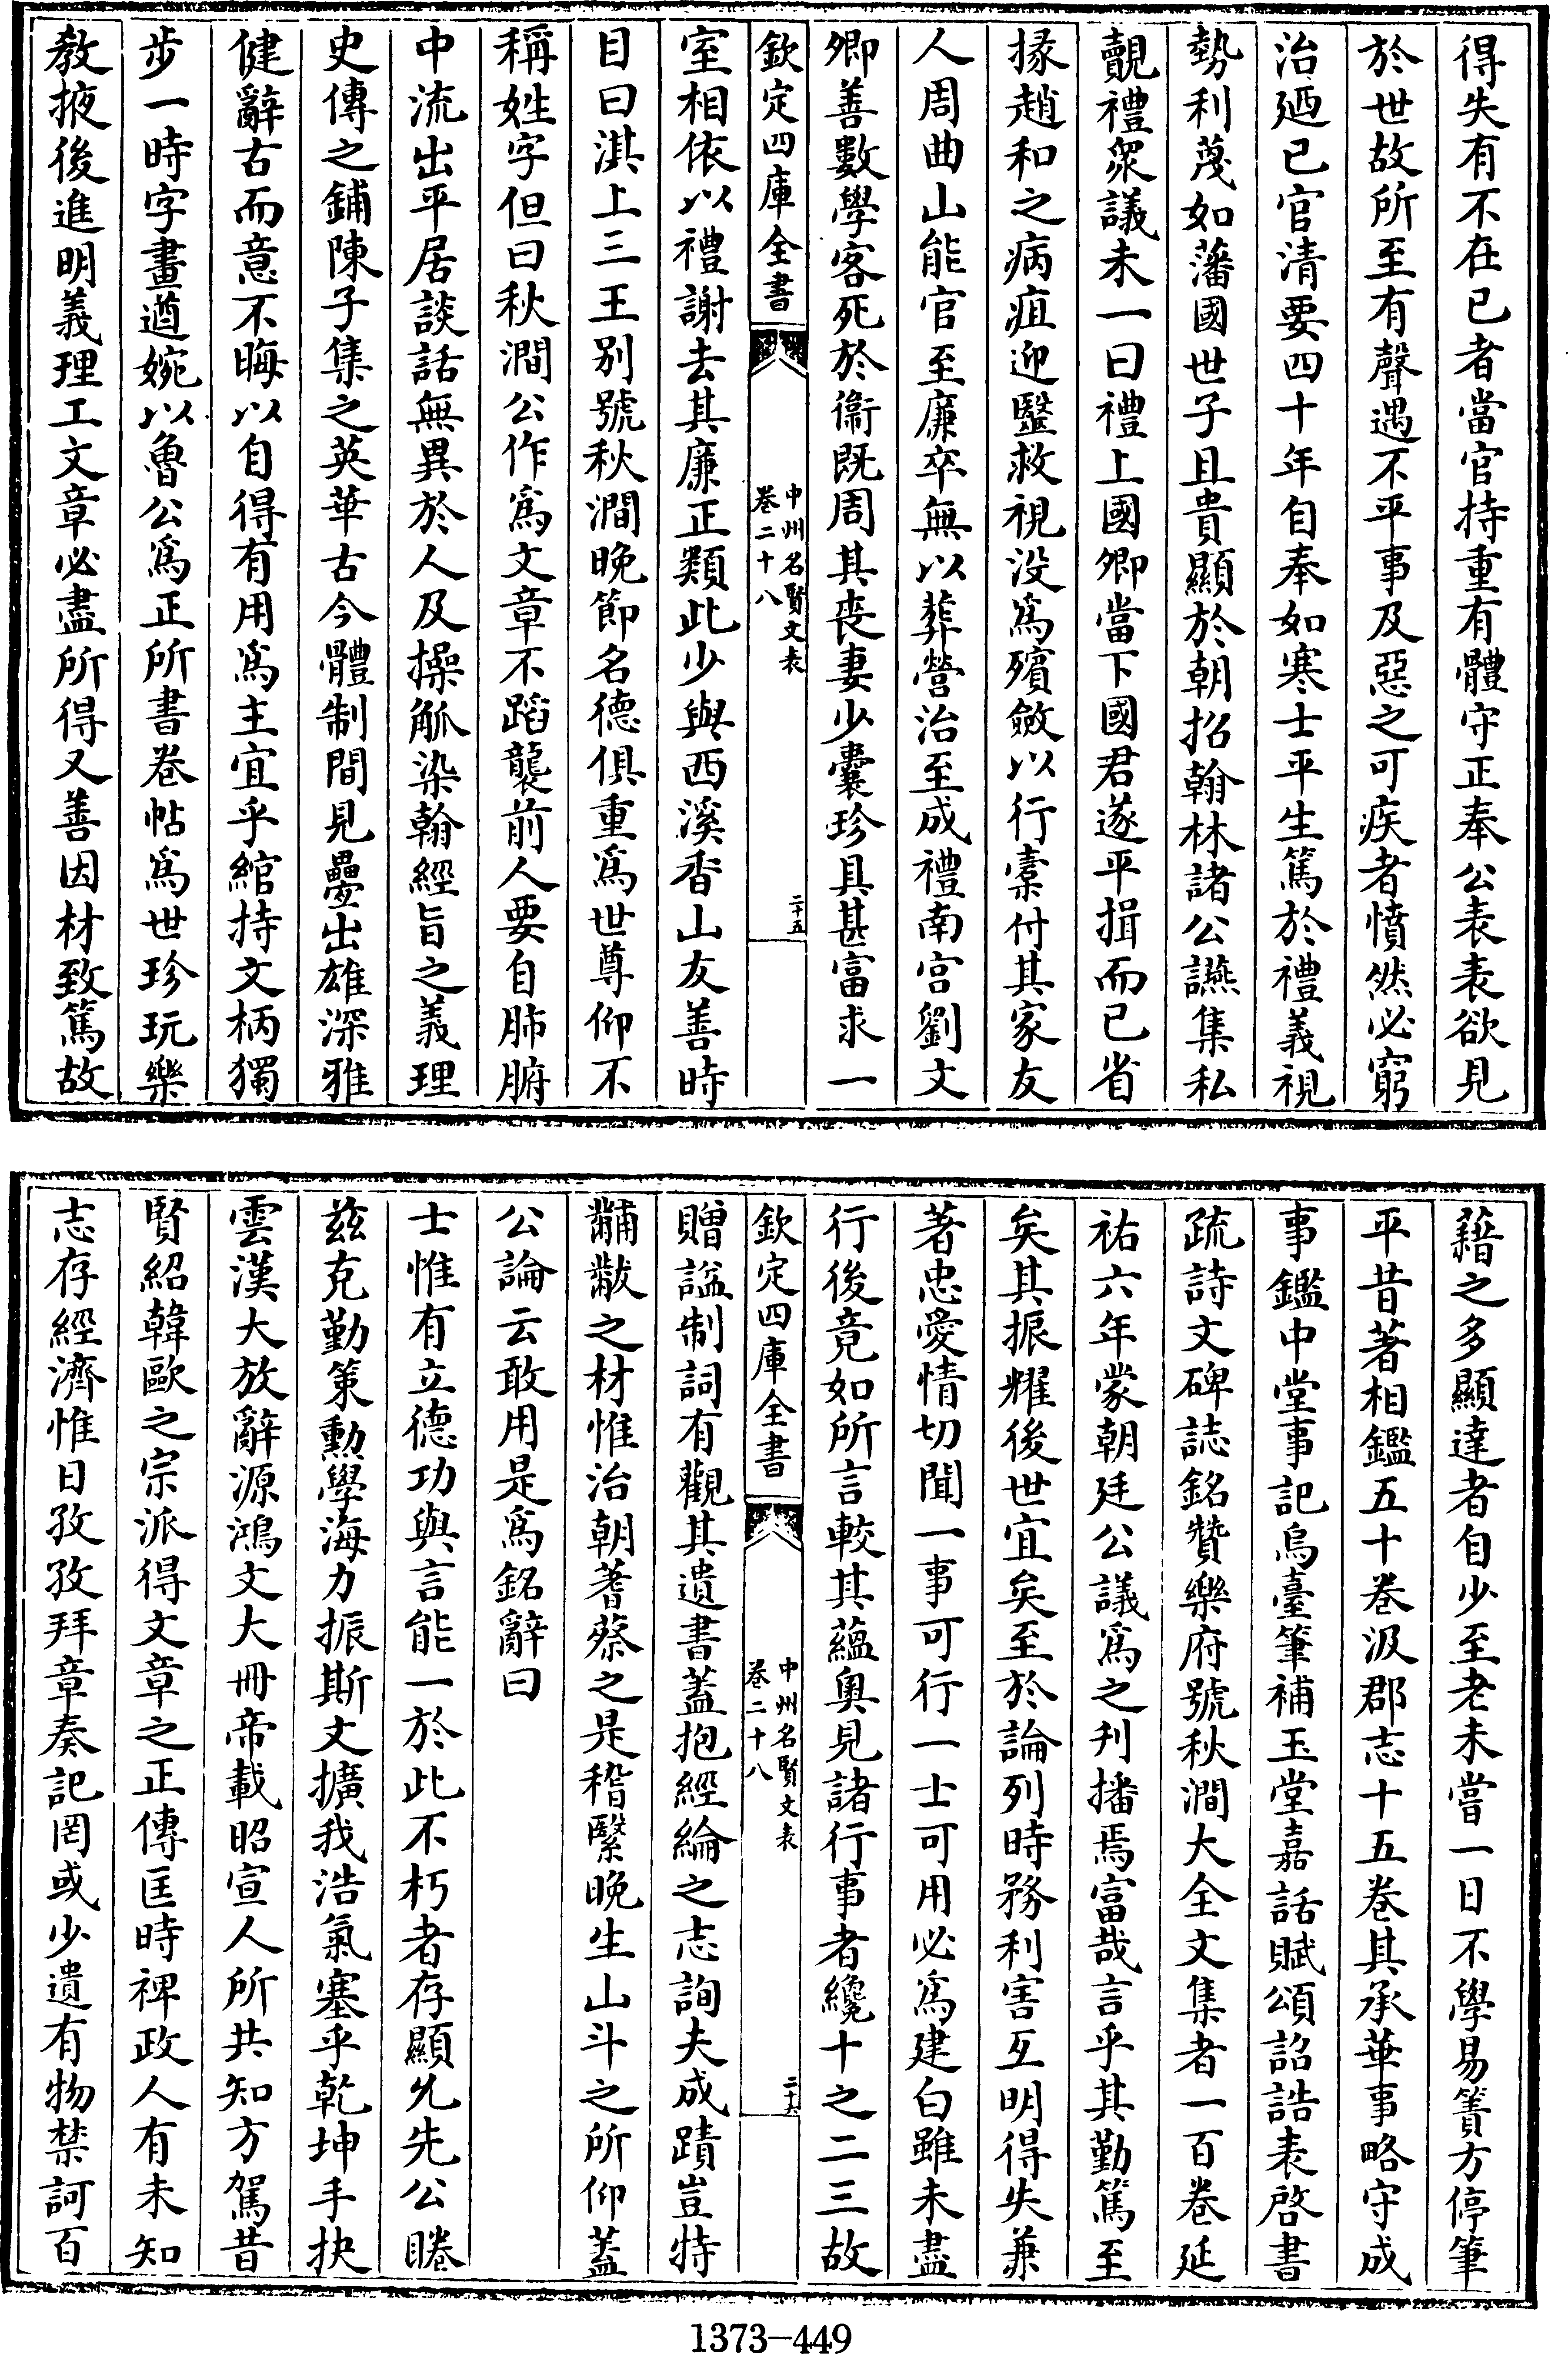 得失有不在已者當官持重有體守正奉公表表欲見
於世故所至有聲遇不平事及惡之可疾者憤然必窮
治廼已官清要四十年自奉如寒士平生篤於禮義視
勢利蔑如藩國世子且貴顯於朝招翰林諸公讌集私
覿禮衆議未一曰禮上國卿當下國君遂平揖而已省
掾趙和之病疽迎毉救視没為殯斂以行橐付其家友
人周曲山能官至廉卒無以葬營治至成禮南宫劉文
卿善數學客死於衞既周其喪妻少囊珍具甚富求一
欽定四庫全書
中州名賢文表
卷二十八
二十五
室相依以禮謝去其廉正類此少與西溪香山友善時
目曰淇上三王别號秋澗晚節名德俱重為世尊仰不
稱姓字但曰秋澗公作為文章不蹈襲前人要自肺腑
中流出平居談話無異於人及操觚染翰經旨之義理
史傳之鋪陳子集之英華古今體制間見疊出雄深雅
健辭古而意不晦以自得有用為主宜乎綰持文柄獨
步一時字畫遒婉以魯公為正所書卷帖為世珍玩樂
教掖後進明義理工文章必盡所得又善因材致篤故
藉之多顯達者自少至老未嘗一日不學易簀方停筆
平昔著相鑑五十卷汲郡志十五卷其承華事略守成
事鑑中堂事記烏臺筆補玉堂嘉話賦頌詔誥表啓書
疏詩文碑誌銘贊樂府號秋澗大全文集者一百卷延
祐六年蒙朝廷公議為之刋播焉富哉言乎其勤篤至
矣其振耀後世宜矣至於論列時務利害互明得失兼
著忠愛情切聞一事可行一士可用必為建白雖未盡
行後竟如所言較其蘊奥見諸行事者纔十之二三故
欽定四庫全書
中州名賢文表
卷二十八
二十六
贈諡制詞有觀其遺書蓋抱經綸之志詢夫成蹟豈特
黼黻之材惟治朝蓍蔡之是稽繄晚生山斗之所仰蓋
公論云敢用是為銘辭曰
士惟有立德功與言能一於此不朽者存顯允先公睠
兹克勤策勲學海力振斯文擴我浩氣塞乎乾坤手抉
雲漢大放辭源鴻文大冊帝載昭宣人所共知方駕昔
賢紹韓歐之宗派得文章之正傳匡時裨政人有未知
志存經濟惟日孜孜拜章奏記罔或少遺有物禁訶百
1373-449